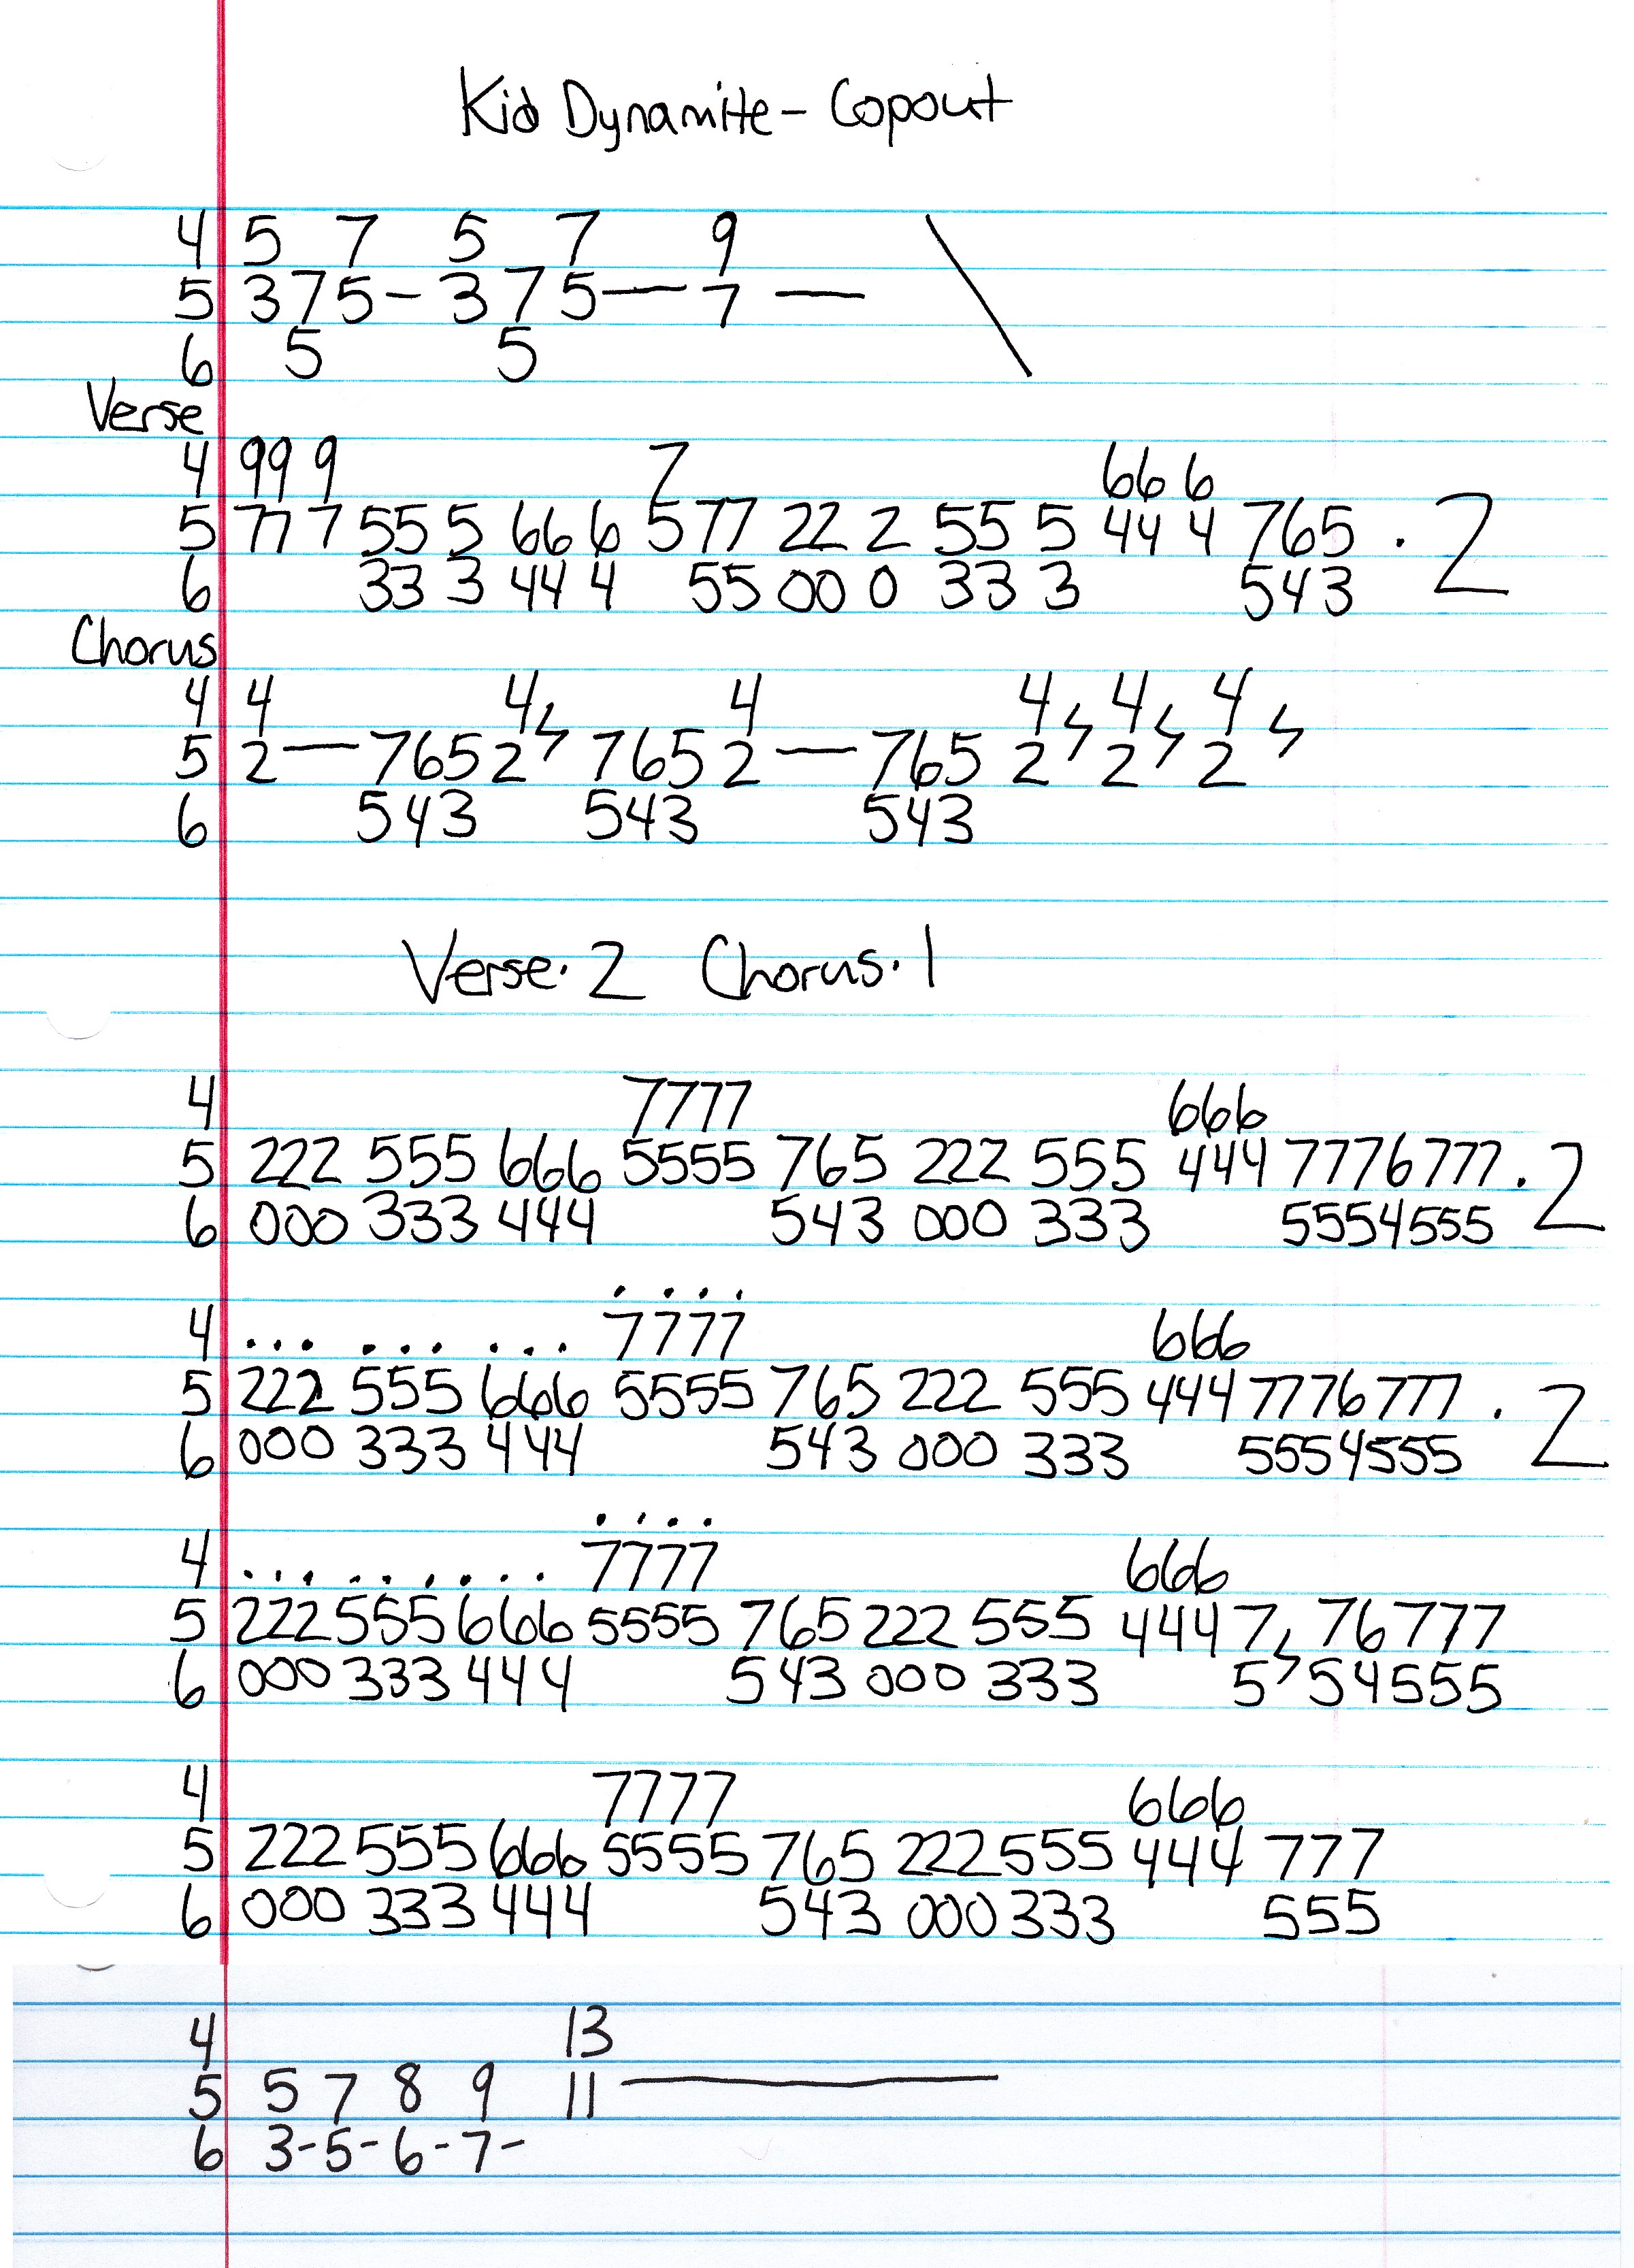 Kid Dynamite - Copout
4 5 7 5 7 9
5 375 - 3 7 5 — 7 — \
6 5 5
Verse
4 99 9 7 66 6
5 77 7 55 5 66 6 5 77 22 2 55 5 44 4 765 . 2
6 33 3 44 4 55 00 0 33 3 543
Chorus
4 4 4 4 4 4 4
5 2 — 765 2 765 2 — 765 2 2 2
6 543 543 543
Verse · 2 Chorus · 1
4 7777 666
5 222 555 666 5555 765 222 555 444 7776777 . 2
6 000 333 444 543 000 333 5554555
. . . .
4 ... ... ... 7777 666
5 222 555 666 5555 765 222 555 444 7776777 . 2
6 000 333 444 543 000 333 5554555
. . . .
4 ......... 7777 666
5 222 555 666 5555 765 222 555 444 7 76777
6 000 333 444 543 000 333 5 54555
4 7777 666
5 222 555 666 5555 765 222 555 444 777
6 000 333 444 543 000 333 555
4 13
5 5 7 8 9 11 —
6 3-5-6-7-